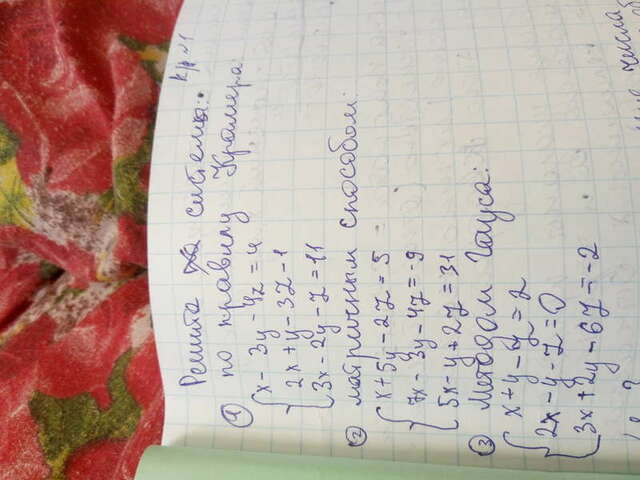 к/р №1
Решита системы:
по правилу Крамера
① { x - 3y - 4z = 4
2x + y - 3z = -1
3x - 2y - z = 11
② матричным способом:
{ x + 5y - 2z = 5
7x - 3y - 4z = -9
5x - y + 2z = 31
③ Методом Гауса:
{ x + y - 6z = 2
2x - y - z = 0
3x + 2y - 6z = -2